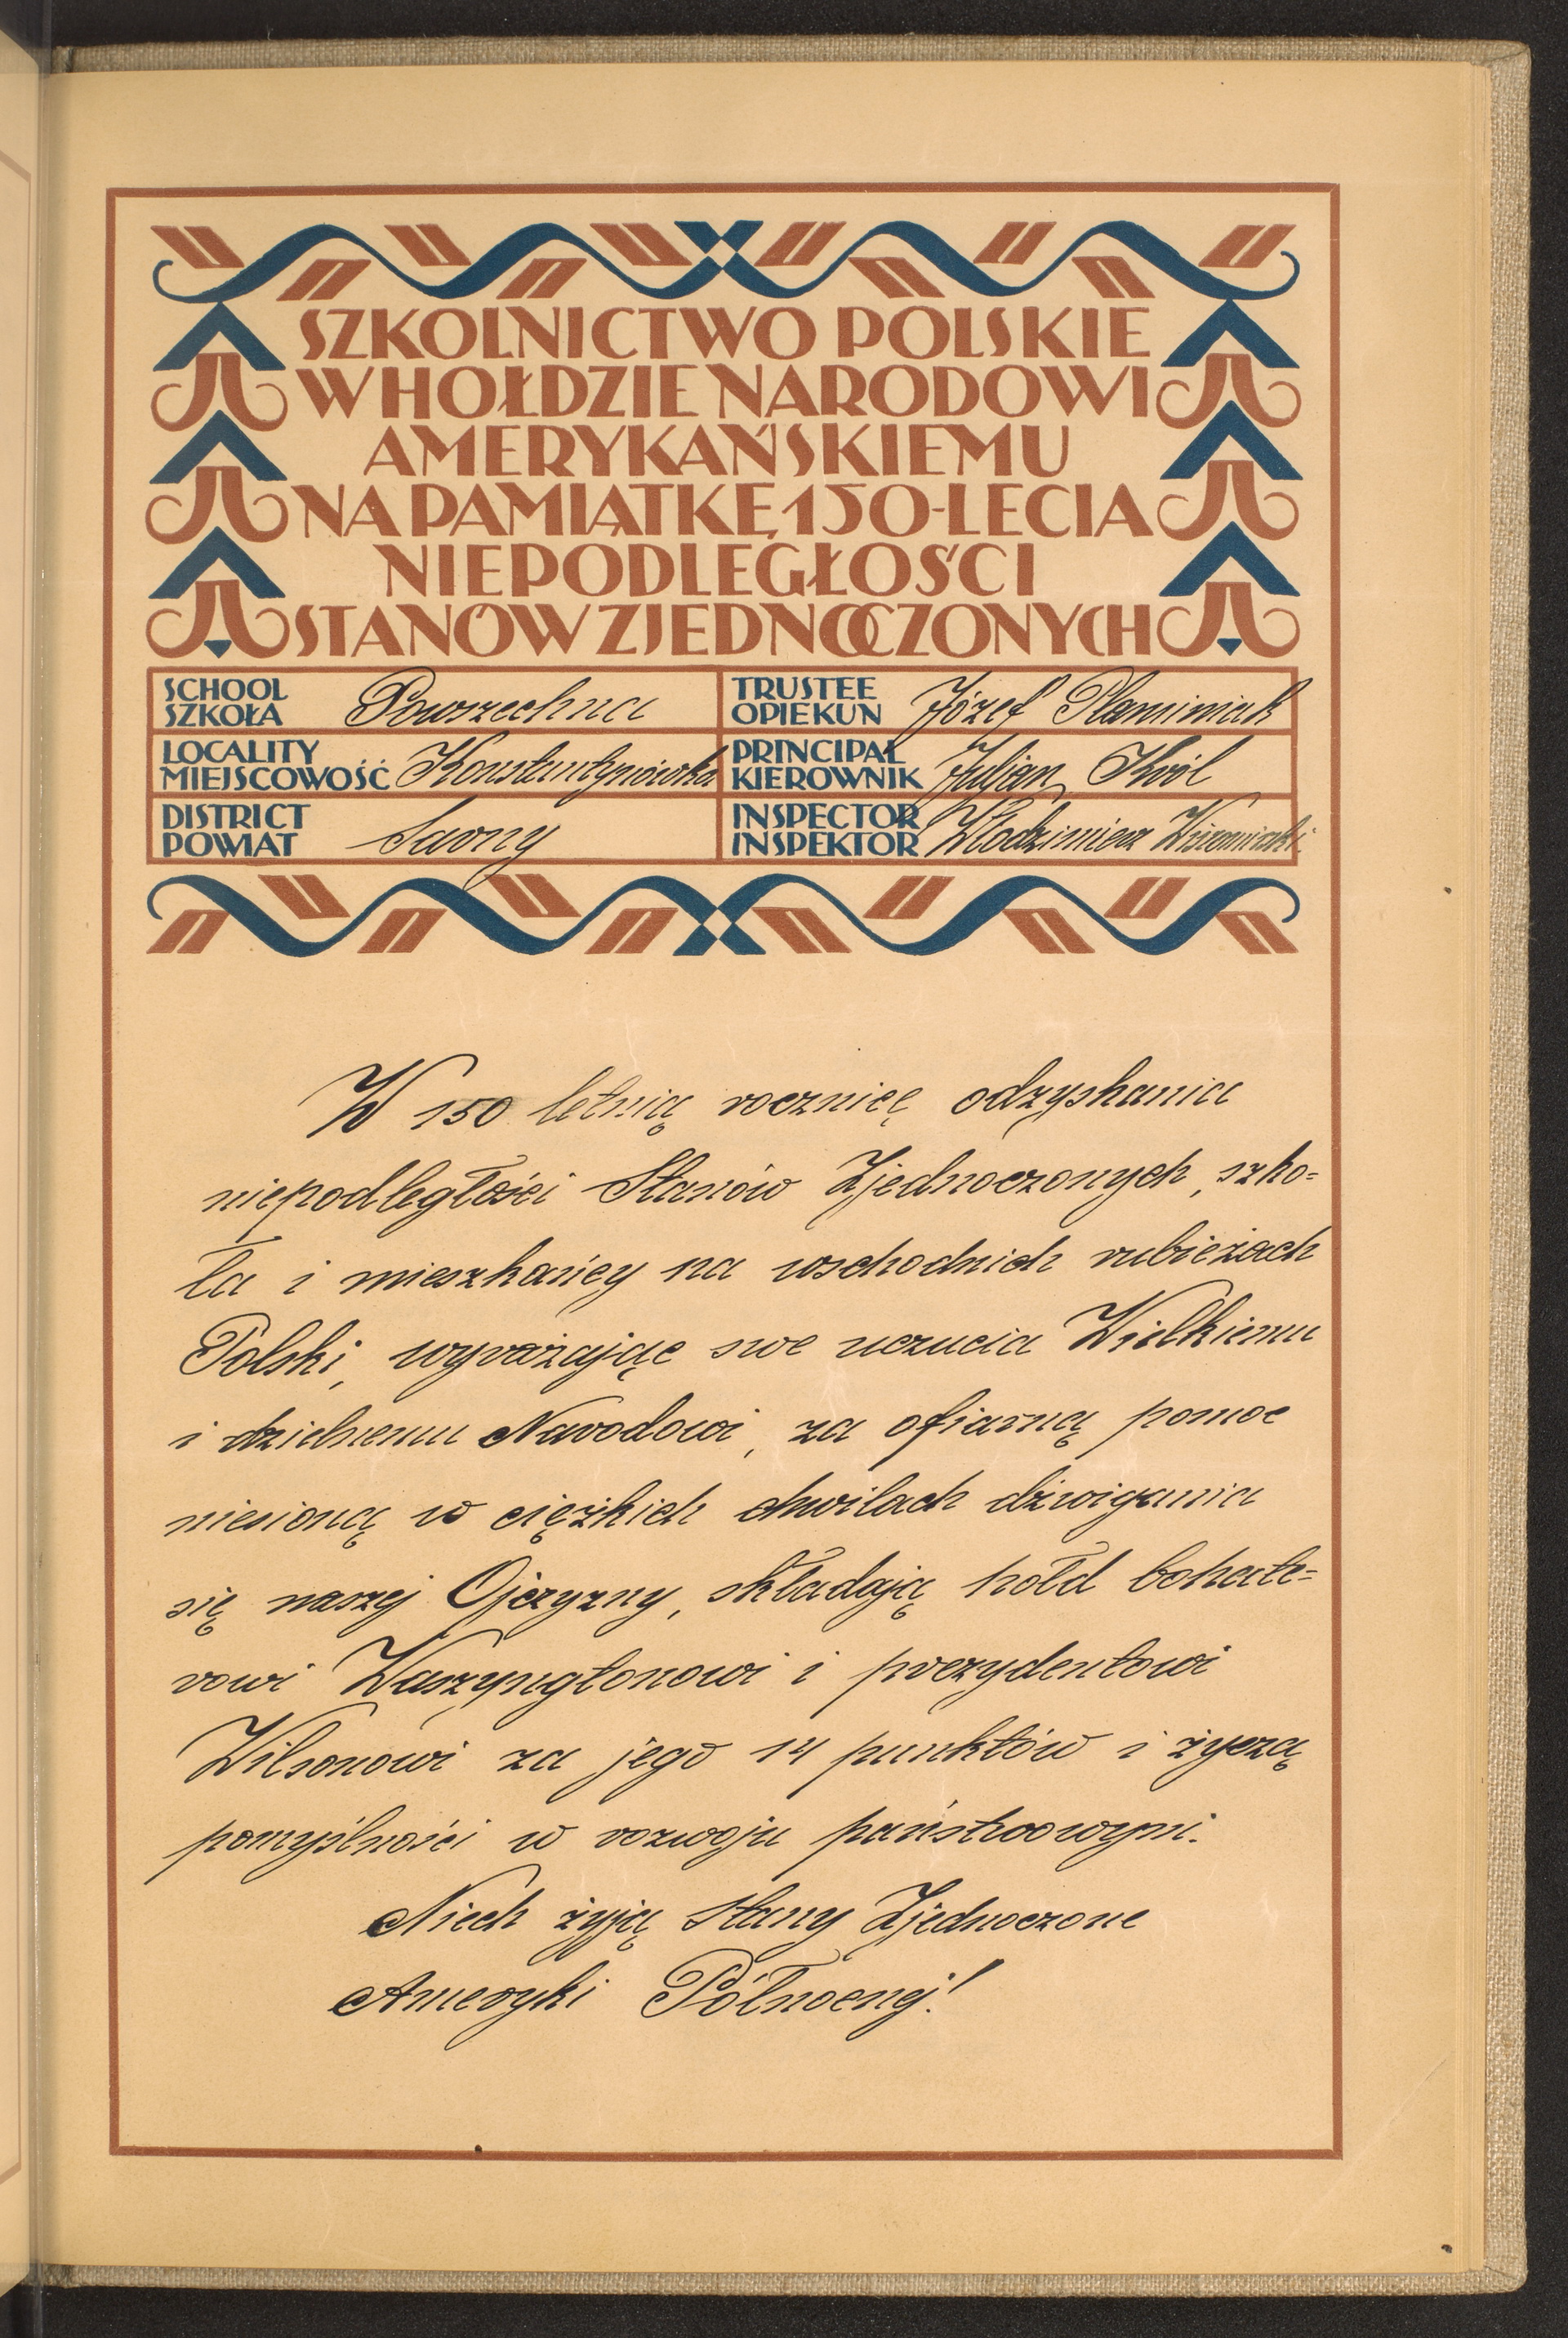 SZKOLNICTWO POLSKIE
W HOŁDZIE NARODOWI
AMERYKAŃSKIEMU
NA PAMIĄTKĘ 150-LECIA
NIEPODLEGŁOŚCI
STANÓW ZJEDNOCZONYCH
SCHOOL
SZKOŁA Powszechna
TRUSTEE
OPIEKUN Józef Płaminiak
LOCALITY
MIEJSCOWOŚĆ Konstantynówka
PRINCIPAL
KIEROWNIK Juljan Król
DISTRICT
POWIAT Sarny
INSPECTOR
INSPEKTOR Włodzimierz
W 150 letnią rocznicę odzyskania
niepodległości Stanów Zjednoczonych, szko=
ła i mieszkańcy na wschodnich rubieżach
Polski, wyrażając swe uczucia Wielkiemu
i dzielnemu Narodowi, za ofiarną pomoc
niesioną w ciężkich chwilach dźwigania
się naszej Ojczyzny, składają hołd bohate=
rowi Waszyngtonowi i prezydentowi
Wilsonowi za jego 14 punktów i życzą
pomyślności w rozwoju państwowym.
Niech żyją Stany Zjednoczone
Ameryki Północnej!